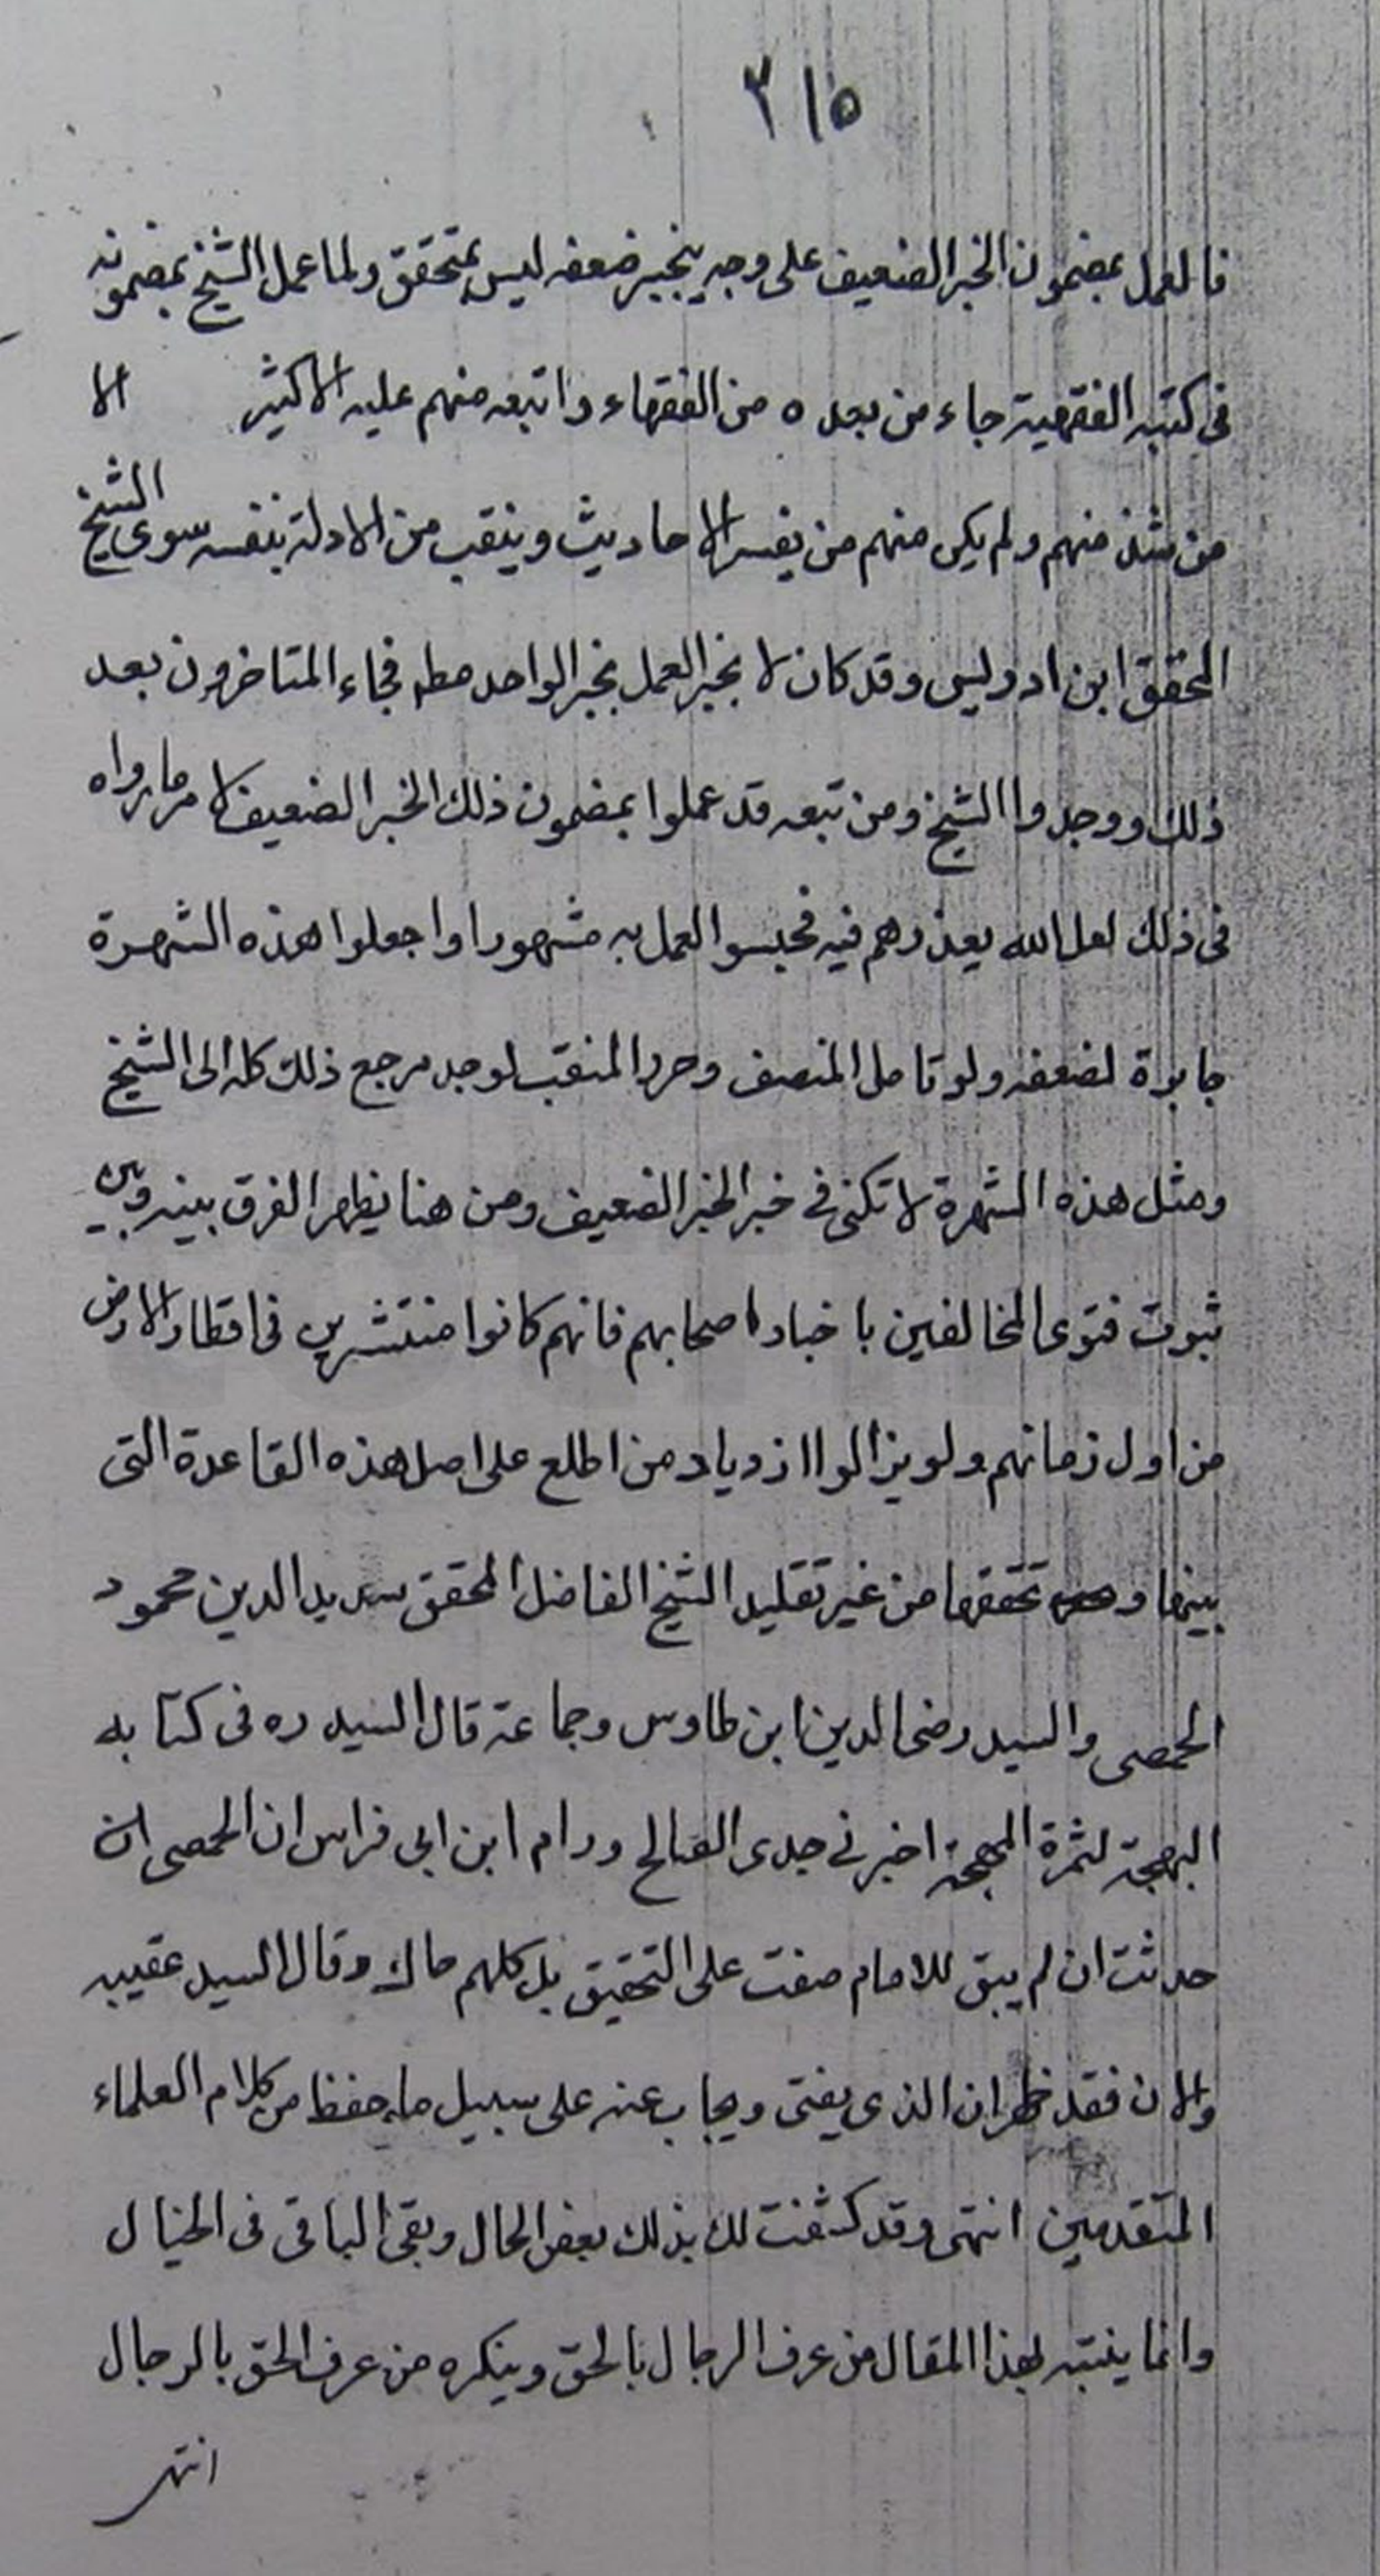 ٣١٥
فالعمل بمضمون الخبر الضعيف على وجه ينجبر ضعفه ليس بمتحقق ولما عمل الشيخ بمضمونه
فى كتبه الفقهية جاء من بعده من الفقهاء واتبعه منهم عليه الاكثر الا
من شذ منهم ولم يكن منهم من يفسر الاحاديث وينقب من الادلة بنفسه سوى الشيخ
المحقق ابن ادريس وقد كان لا يجبر العمل بخبر الواحد مطه فجاء المتاخرون بعد
ذلك ووجدوا الشيخ ومن تبعه قد عملوا بمضمون ذلك الخبر الضعيف لامر ما رواه
فى ذلك لعل الله يعذرهم فيه فحبسوا العمل به مشهورا واجعلوا هذه الشهرة
جابرة لضعفه ولو تامل المنصف وحرر المنقب لوجد مرجع ذلك كله الى الشيخ
ومثل هذه الشهرة لا تكفى فى خبر الخبر الضعيف ومن هنا يظهر الفرق بينه وبين
ثبوت فتوى المخالفين باخبار اصحابهم فانهم كانوا منتشرين فى اقطار الارض
من اول زمانهم ولو يزالوا ازدياد من اطلع على اصل هذه القاعدة التى
بينها و تحققها من غير تقليد الشيخ الفاضل المحقق سديد الدين محمود
الحمصى والسيد رضى الدين ابن طاوس وجماعة قال السيد ره فى كتابه
البهجة لثمرة المهجة اخبرنى جدى الصالح ورام ابن ابى فراس ان الحمصى ان
حدثت ان لم يبق للامام مفت على التحقيق بل كلهم حاك وقال السيد عقيبه
والان فقد ظهر ان الذى يفتى ويجاب عنه على سبيل ما حفظ من كلام العلماء
المتقدمين انتهى وقد كشفت لك بذلك بعض الحال وبقى الباقى فى الخيال
وانما ينتبه لهذا المقال من عرف الرجال بالحق وينكره من عرف الحق بالرجال
انتهى